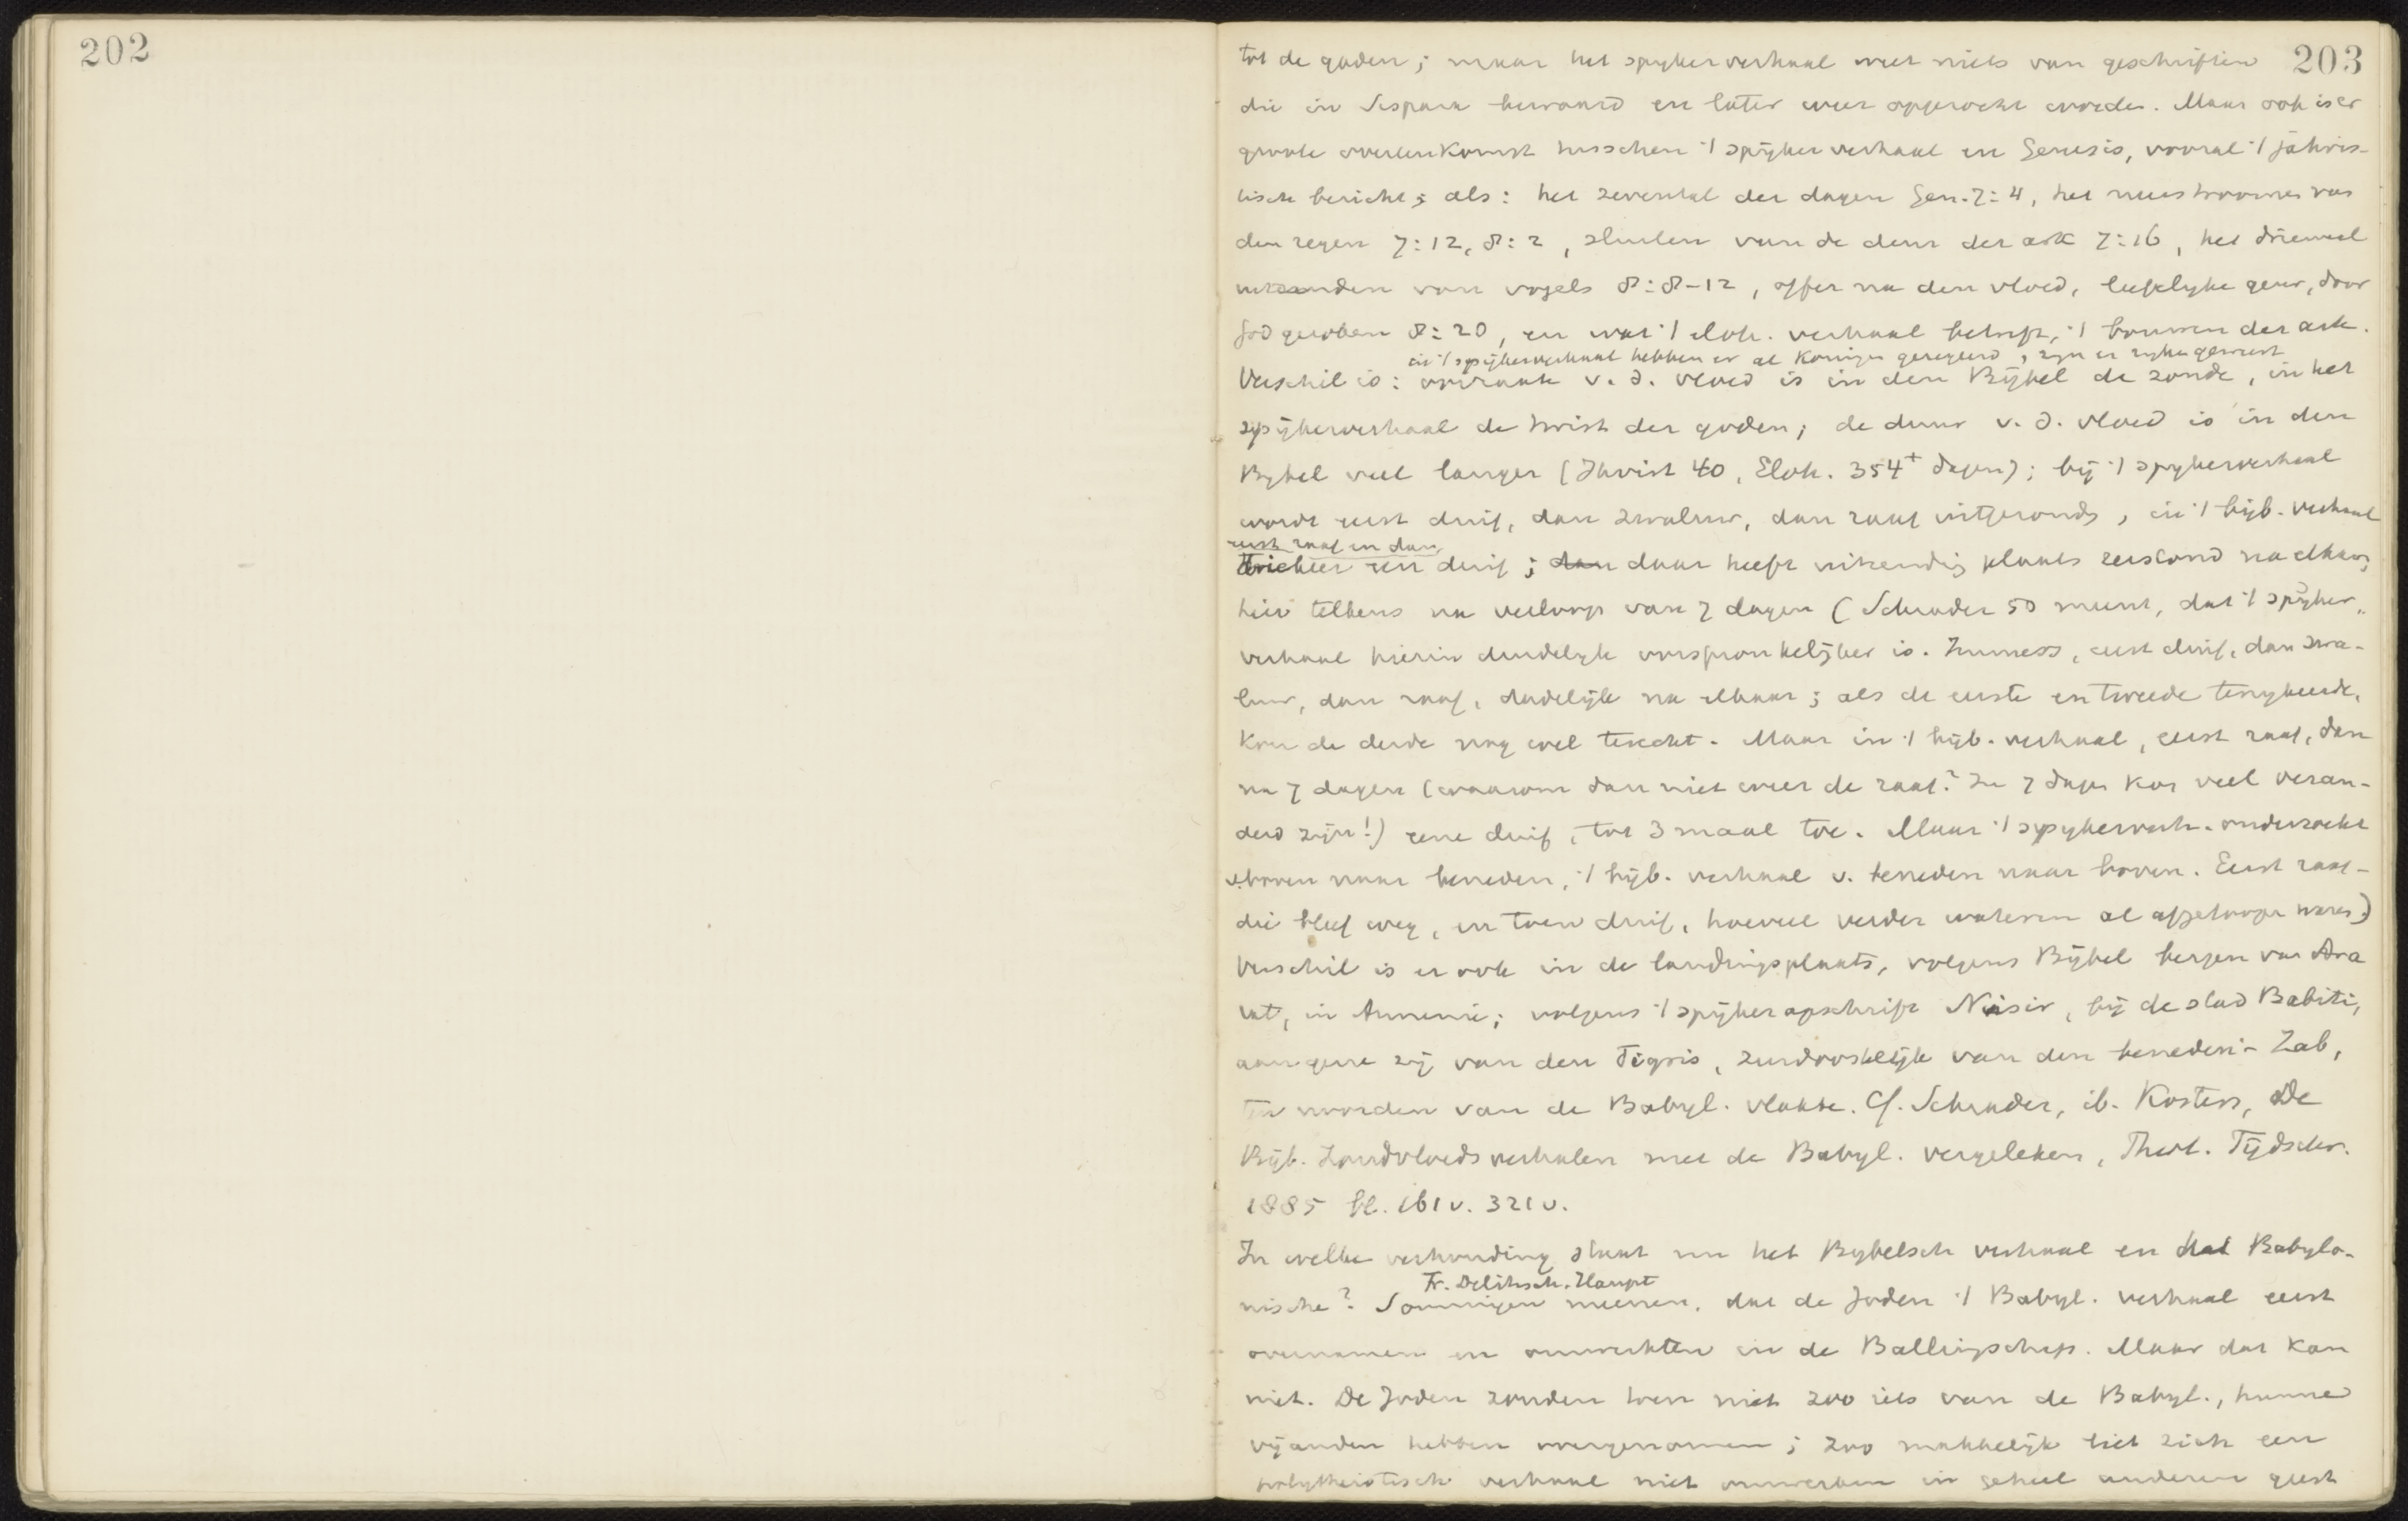 202
203
tot de goden; maar het spijkerverhaal weet niets van geschriften
die in Sispara bewaard en later weer opgezocht worden. Maar ook is er
groote overeenkomst tusschen 't spijkerverhaal en Genesis, vooral 't jahvis-
tische bericht; als: het zevental der dagen Gen. 7:4, het neerstroomen van
den regen 7:12, 8:2, sluiten van de deur der ark 7:16, het driemaal
uitzenden van vogels 8:8-12, offer na den vloed, liefelyke geur, door
God geroken 8:20, en wat 't eloh. verhaal betreft, 't bouwen der ark.
in 't spijkerverhaal hebben er al koningen geregeerd, zijn er ryken geweest
Verschil is: oorzaak v. d. vloed is in den Bijbel de zonde, in het
spijkerverhaal de twist der goden; de duur v. d. vloed is in den
Bybel veel langer (Jhvist 40, Eloh. 354+ dagen); bij 't spykerverhaal
wordt eerst duif, dan zwaluw, dan raaf uitgezonden, in 't bijb. verhaal
eerst raaf en dan
driekeer een duif; dan daar heeft uitzending plaats terstond na elkaar,
hier telkens na verloop van 7 dagen (Schrader 50 meent, dat 't spijker-
verhaal hierin duidelyk oorspronkelijker is. Immers, eerst duif, dan zwa-
luw, dan raaf, dadelijk na elkaar; als de eerste en tweede terugkeerde,
kon de derde nog wel terecht. Maar in 't bijb. verhaal, eerst raaf, dan
na 7 dagen (waarom dan niet weer de raaf? In 7 dagen kon veel veran-
derd zijn!) eene duif, tot 3 maal toe. Maar 't spykerverh. onderzoekt
v. boven naar beneden, 't bijb. verhaal v. beneden naar boven. Eerst raaf -
die bleef weg, en toen duif, hoeveel verder wateren al afgeloopen waren.)
Verschil is er ook in de landingsplaats, volgens Bijbel bergen van Ara
rat, in Armenie; volgens 't spijkeropschrift Nisir, bij de stad Babiti,
aan gene zij van den Tigris, zuidoostelijk van den beneden-Zab,
ten noorden van de Babyl. vlakte. Cf. Schrader, ib. Kosters, De
Bijb. Zondvloedsverhalen met de Babyl. vergeleken, Theol. Tijdschr.
1885 bl. 161 v. 321 v.
In welke verhouding staat nu het Bybelsch verhaal en dat Babylo-
Fr. Delitzsch. Haupt
nische? Sommigen meenen, dat de Joden 't Babyl. verhaal eerst
overnamen en omwerkten in de Ballingschap. Maar dat kan
niet. De Joden zouden toen niet zoo iets van de Babyl., hunne
vijanden hebben overgenomen; zoo makkelijk liet zich een
polytheistisch verhaal niet omwerken in geheel anderen geest